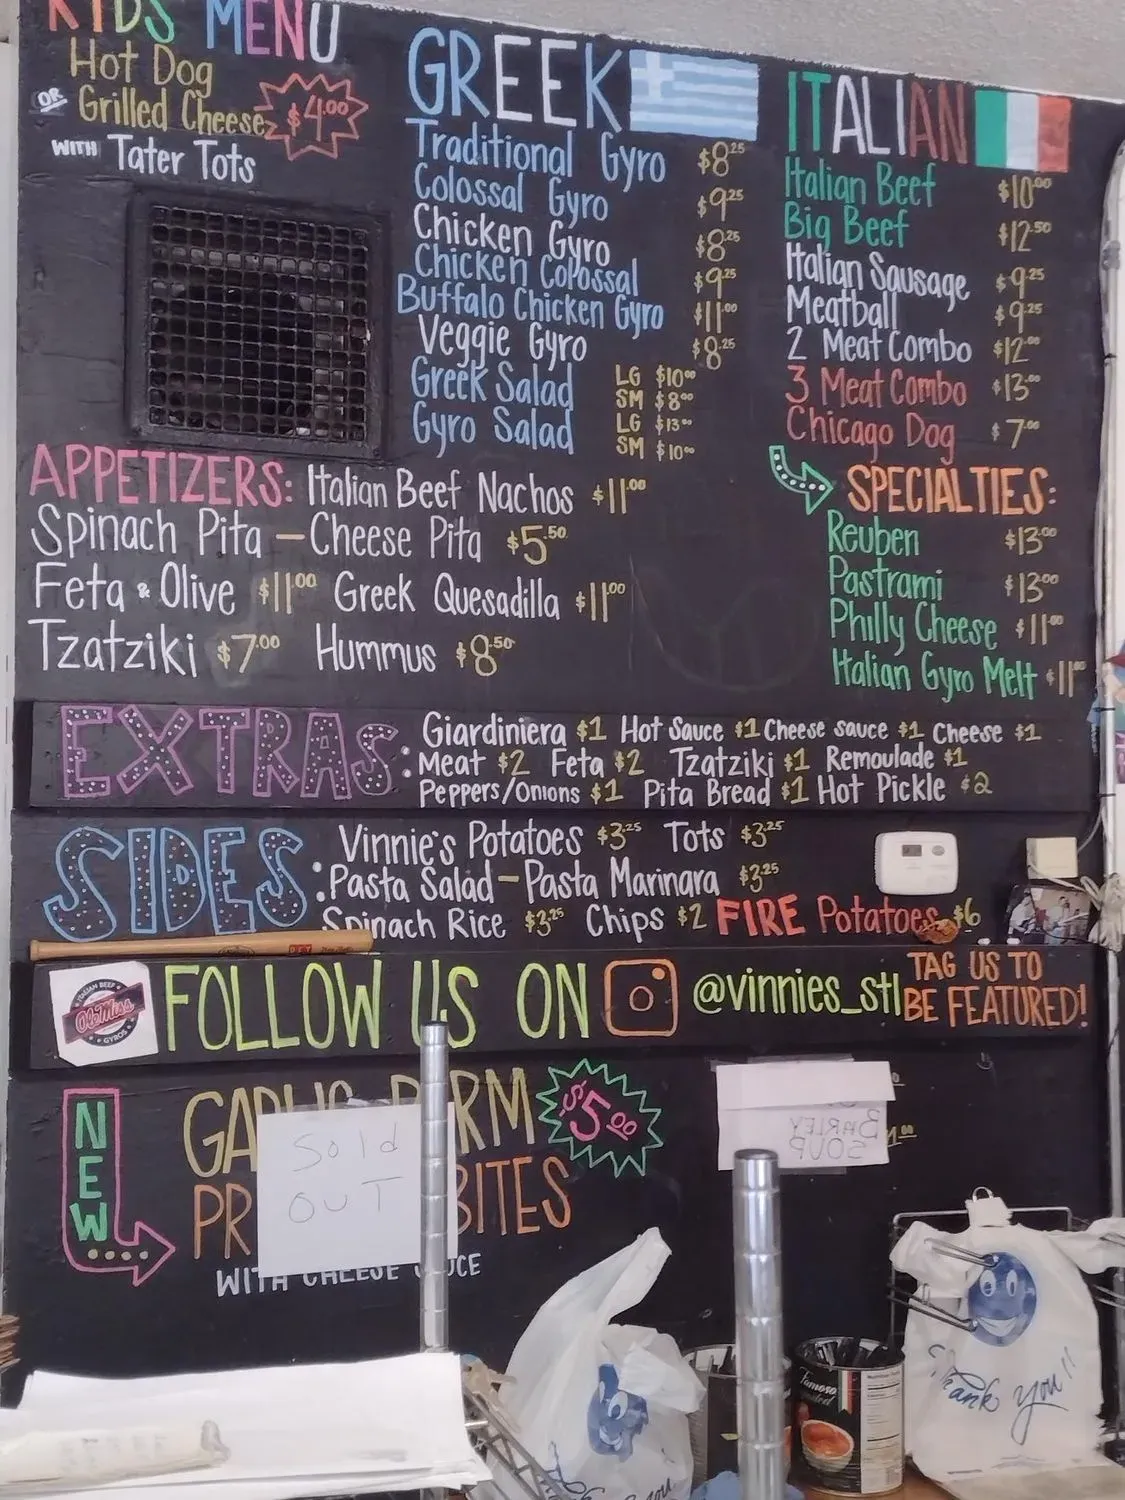 KIDS MENU
Hot Dog
OR Grilled Cheese $4.00
WITH Tater Tots
GREEK
Traditional Gyro $8.25
Colossal Gyro $9.25
Chicken Gyro $8.25
Chicken Colossal $9.25
Buffalo Chicken Gyro $11.00
Veggie Gyro $8.25
Greek Salad LG $10.00
SM $8.00
Gyro Salad LG $13.00
SM $10.00
ITALIAN
Italian Beef $10.00
Big Beef $12.50
Italian Sausage $9.25
Meatball $9.25
2 Meat Combo $12.00
3 Meat Combo $13.00
Chicago Dog $7.00
SPECIALTIES:
Reuben $13.00
Pastrami $13.00
Philly Cheese $11.00
Italian Gyro Melt $11.00
APPETIZERS: Italian Beef Nachos $11.00
Spinach Pita – Cheese Pita $5.50
Feta & Olive $11.00 Greek Quesadilla $11.00
Tzatziki $7.00 Hummus $8.50
EXTRAS: Giardiniera $1 Hot Sauce $1 Cheese sauce $1 Cheese $1
Meat $2 Feta $2 Tzatziki $1 Remoulade $1
Peppers/Onions $1 Pita Bread $1 Hot Pickle $2
SIDES: Vinnie's Potatoes $3.25 Tots $3.25
Pasta Salad – Pasta Marinara $3.25
Spinach Rice $3.25 Chips $2 FIRE Potatoes $6
ITALIAN BEEF
Ole Miss
GYROS
FOLLOW US ON @vinnies_stl
TAG US TO
BE FEATURED!
NEW
PARM $5.00
BITES
WITH CHEESE
Sold
OUT
BARLEY
SOUP
Famoso
Thank you!!